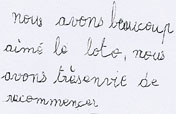 nous avons beaucoup
aimé le loto, nous
avons très envie de
recommencer